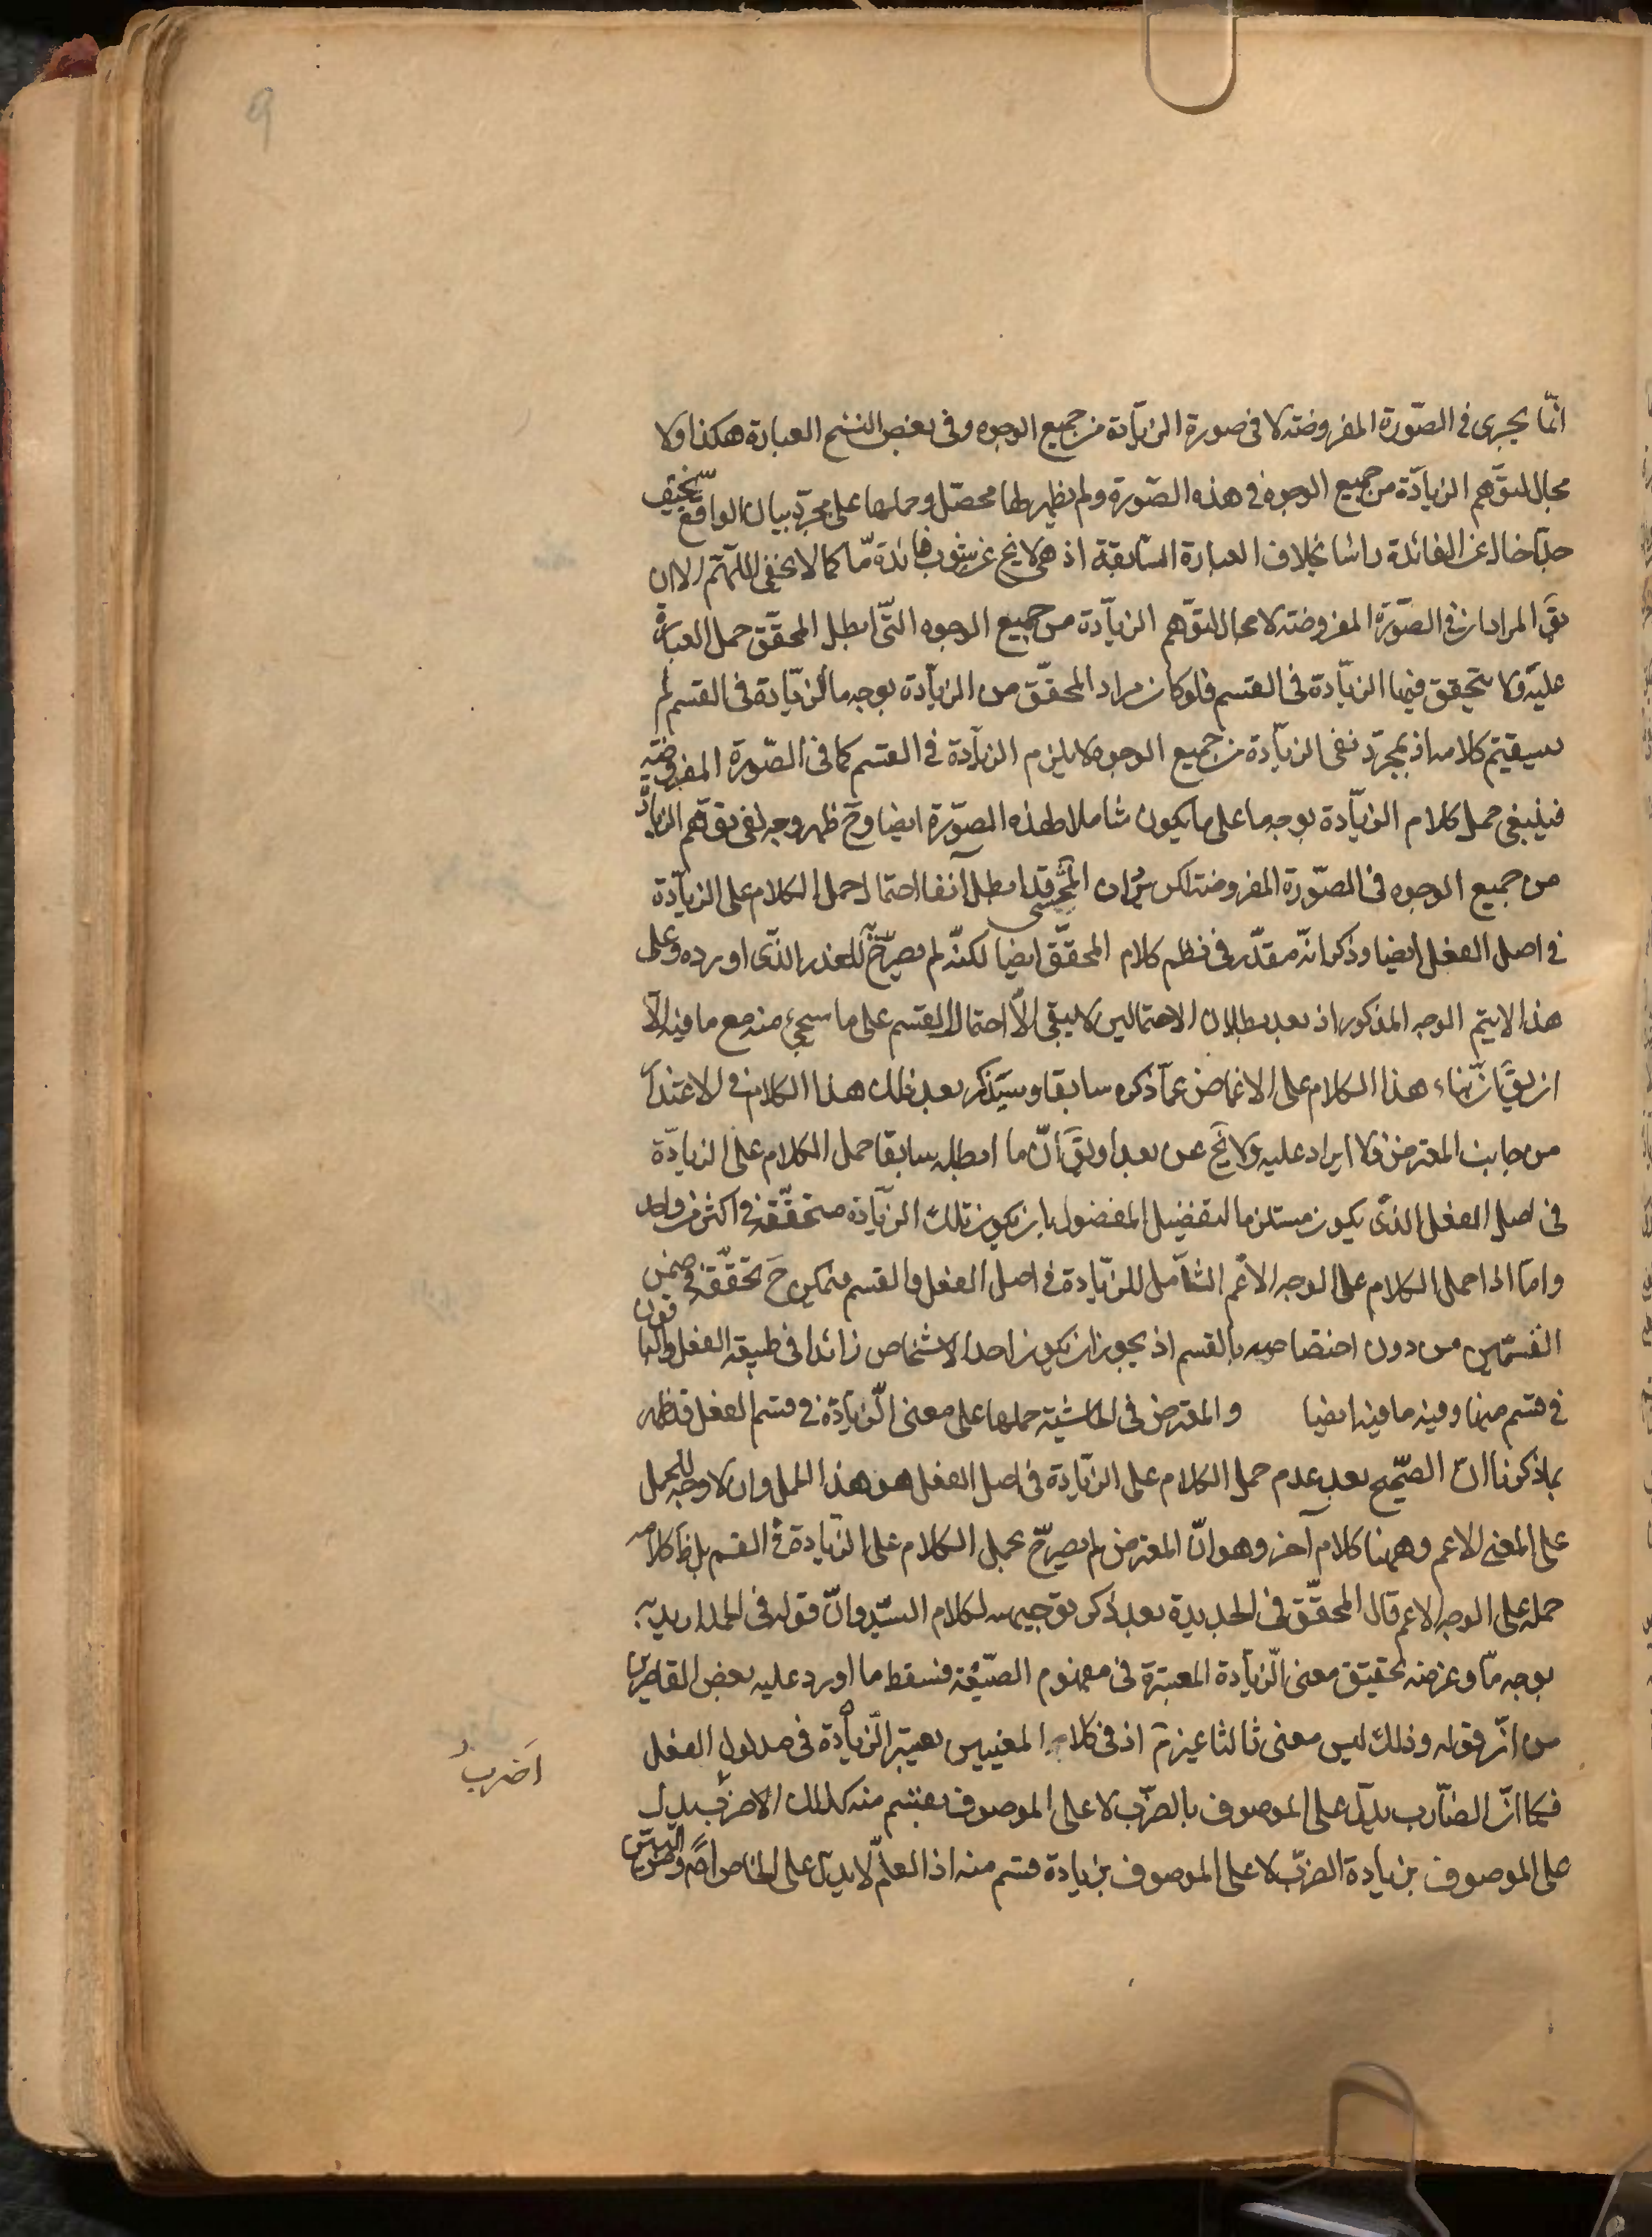 ٩
انّما يجرى فى الصّورة المفروضة لا فى صورة الزيّادة من جميع الوجوه وفى بعض النسخ العبارة هكذا ولا
مجال لتوّهم الزيادّة من جميع الوجوه فى هذه الصّورة ولم يظهر لها محصّل وحملها على مجرّد بيان الواقع سخيف
جدّا خال عن الفائدة راسا بخلاف العبارة السّابقة اذ هى لا يخ عن شوب فائدة مّا كما لا يخفى اللّهمّ الا ان
يقَ المراد ان فى الصّورة المفروضة لا مجال لتوّهم الزيّادة من جميع الوجوه التّى ابطل المحقّق حمل العبارة
عليه ولا يتحقق فيها الزيّادة فى القسم فلو كان مراد المحقّق من الزيّادة بوجه ما الزيّادة فى القسم لم
يستقيم كلامه اذ بمجرّد نفى الزيّادة من جميع الوجوه لا يلزم الزيادة فى القسم كما فى الصّورة المفروضة
فينبغى حمل كلام الزيّادة بوجه ما على ما يكون شاملا لهذه الصّورة ايضا وحَ ظهر وجه نفى توّهم الزيادّة
من جميع الوجوه فى الصّورة المفروضة لكن ان المحشى قد ابطل آنفا احتمال حمل الكلام على الزيادّة
فى اصل الفعل ايضا وذكر انّه مقدّر فى نظم كلام المحقّق ايضا لكنّه لم يصرّح به للعذر الذّى اورده وعلى
هذا لا يتم الوجه المذكور اذ بعد بطلان الاحتمالين لا يبقى الّا احتمال القسم على ما سيجئ منه مع ما فيه الّا
ان يقَ انّ بناء هذا الكلام على الاغماض عمّا ذكره سابقا وسيذكر بعد ذلك هذا الكلام فى الاعتذار
من جانب المعترض فلا ايراد عليه ولا يخَ عن بعد او يقَ انّ ما ابطله سابقا حمل الكلام على الزيادّة
فى اصل الفعل الذّى يكون مستلزما لتفضيل المفضول بان يكون تلك الزيّادة متحقّقة فى اكثر من واحد
وامّا اذا حمل الكلام على الوجه الاعّم الشّامل للزيّادة فى اصل الفعل والقسم فيمكن حَ تحقّقه فى ضمن
القسمين من دون اختصاصه بالقسم اذ يجوز ان يكون احد الاشخاص زائدا فى طبيعة الفعل والباقون
فى قسم منها وفيه ما فيه ايضا والمعترض فى الحاشية حملها على معنى الزّيادة فى قسم الفعل قد ظهر
بما ذكرنا انّ الصّحيح بعد عدم حمل الكلام على الزيّادة فى اصل الفعل هو هذا الحمل وان لا وجه للحمل
على المعنى الاعم وههنا كلام آخر وهو انّ المعترض لم يصرّح بحمل الكلام على الزيّادة فى القسم بل ظ كلامه
حمله على الوجه الاعم قال المحقّق فى الجديدة بعد ذكر توجيهه لكلام السّيد وانّ قوله فى الجدار يد به
بوجه مّا وغرضه تحقيق معنى الزّيادة المعتبرة فى مفهوم الصّيغة فسقط ما اورد عليه بعض القاصرين
من انّ قوله وذلك ليس معنى ثالثا غيرهم اذ فى كلا المعنيين يعتبر الزّيادة فى مدلول الفعل
فكما انّ الضّارب يدلّ على الموصوف بالضّرب لا على الموصوف بقسم منه كذلك الاضرب يدل
على الموصوف بزيادة الضّرب لا على الموصوف بزيادة قسم منه اذ العامّ لا يدلّ على الخاص اصَ
اَضربُ